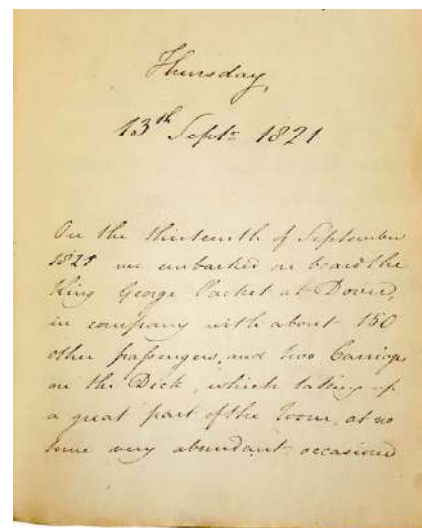 Thursday,
13th Septr. 1821
On the thirteenth of September
1821 we embarked on board the
King George Packet at Dover,
in company with about 150
other passengers, and two Carriages
on the Deck, which taking up
a great part of the Room, at no
time very abundant occasioned